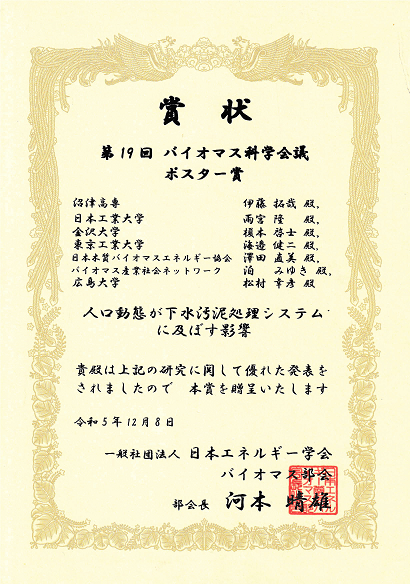 賞状
第19回 バイオマス科学会議
ポスター賞
沼津高専 伊藤 拓哉 殿,
日本工業大学 雨宮 隆 殿,
金沢大学 榎本 啓士 殿,
東京工業大学 海邉 健二 殿,
日本木質バイオマスエネルギー協会 澤田 直美 殿,
バイオマス産業社会ネットワーク 泊 みゆき 殿,
広島大学 松村 幸彦 殿
人口動態が下水汚泥処理システム
に及ぼす影響
貴殿は上記の研究に関して優れた発表を
されましたので 本賞を贈呈いたします
令和5年12月8日
一般社団法人 日本エネルギー学会
バイオマス部会
部会長 河本 晴雄